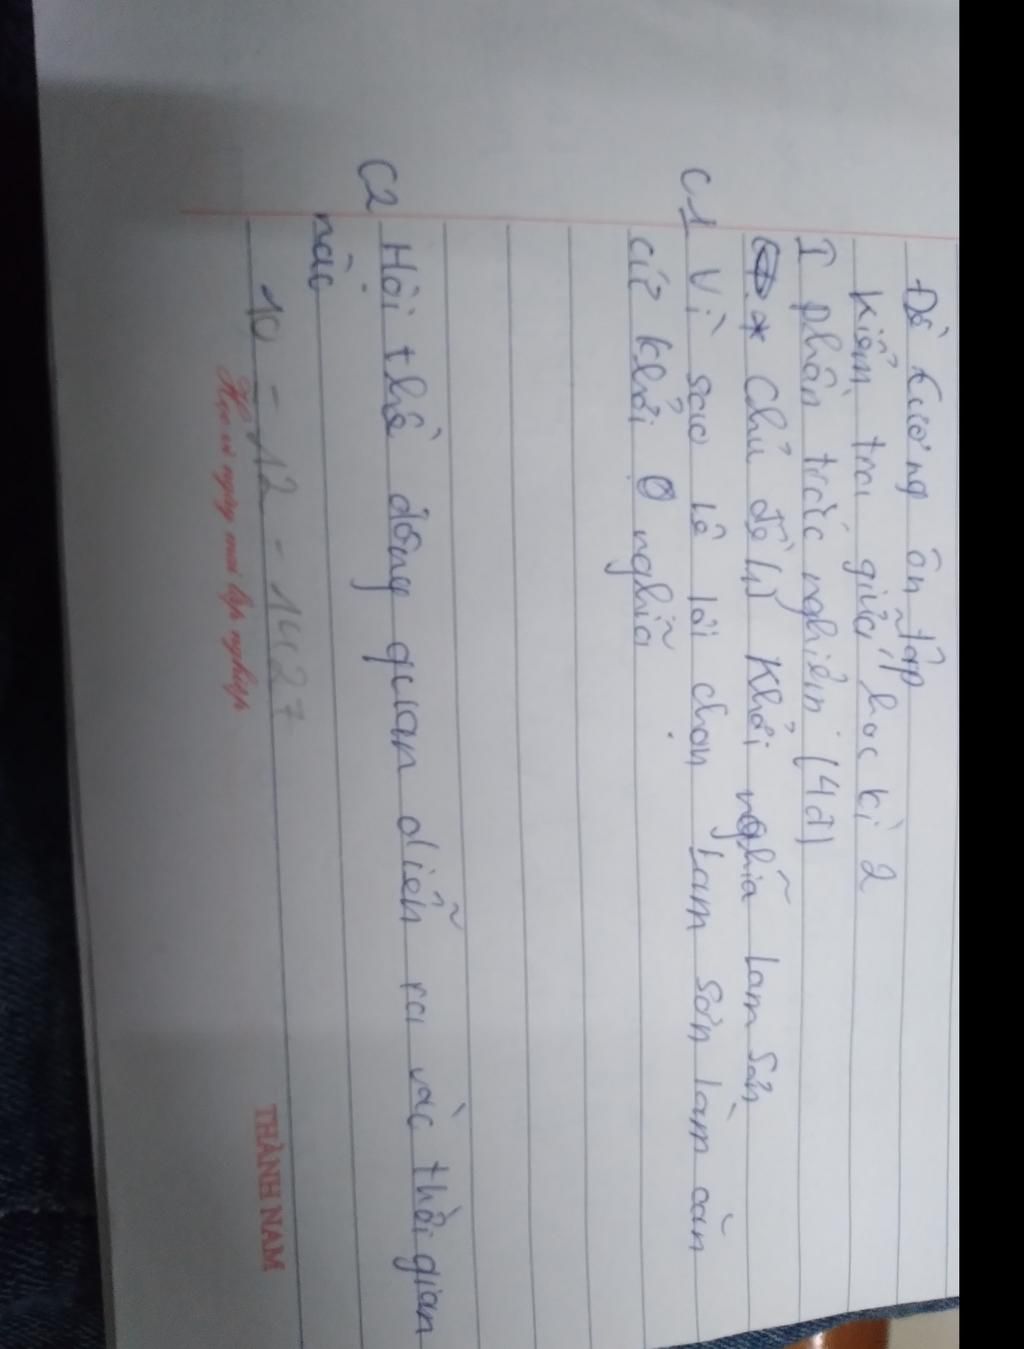 Đề cương ôn tập
kiểm tra giữa học kì 2
I phần trắc nghiệm (4đ)
* Chủ đề (1) Khởi nghĩa Lam Sơn
C1 Vì sao Lê Lợi chọn Lam Sơn làm căn
cứ khởi nghĩa
C2 Hội thề đông quan diễn ra vào thời gian
nào
10 - 12 - 1427
Học vì ngày mai lập nghiệp
THÀNH NAM